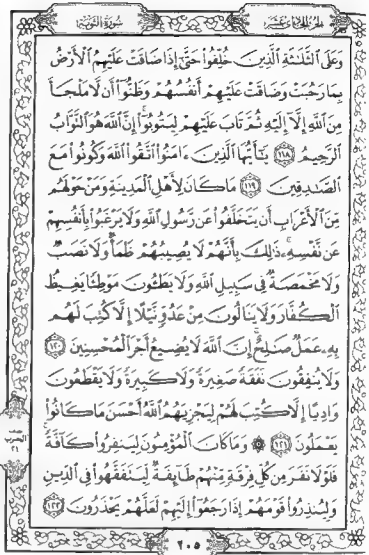 سُورَةُ التَّوْبَةِ
الجزء الحادي عشر
وَعَلَى ٱلثَّلَٰثَةِ ٱلَّذِينَ خُلِّفُوا۟ حَتَّىٰٓ إِذَا ضَاقَتْ عَلَيْهِمُ ٱلْأَرْضُ
بِمَا رَحُبَتْ وَضَاقَتْ عَلَيْهِمْ أَنفُسُهُمْ وَظَنُّوٓا۟ أَن لَّا مَلْجَأَ
مِنَ ٱللَّهِ إِلَّآ إِلَيْهِ ثُمَّ تَابَ عَلَيْهِمْ لِيَتُوبُوٓا۟ ۚ إِنَّ ٱللَّهَ هُوَ ٱلتَّوَّابُ
ٱلرَّحِيمُ ١١٨ يَٰٓأَيُّهَا ٱلَّذِينَ ءَامَنُوا۟ ٱتَّقُوا۟ ٱللَّهَ وَكُونُوا۟ مَعَ
ٱلصَّٰدِقِينَ ١١٩ مَا كَانَ لِأَهْلِ ٱلْمَدِينَةِ وَمَنْ حَوْلَهُم
مِّنَ ٱلْأَعْرَابِ أَن يَتَخَلَّفُوا۟ عَن رَّسُولِ ٱللَّهِ وَلَا يَرْغَبُوا۟ بِأَنفُسِهِمْ
عَن نَّفْسِهِۦ ۚ ذَٰلِكَ بِأَنَّهُمْ لَا يُصِيبُهُمْ ظَمَأٌ وَلَا نَصَبٌ
وَلَا مَخْمَصَةٌ فِى سَبِيلِ ٱللَّهِ وَلَا يَطَـُٔونَ مَوْطِئًا يَغِيظُ
ٱلْكُفَّارَ وَلَا يَنَالُونَ مِنْ عَدُوٍّ نَّيْلًا إِلَّا كُتِبَ لَهُم
بِهِۦ عَمَلٌ صَٰلِحٌ ۚ إِنَّ ٱللَّهَ لَا يُضِيعُ أَجْرَ ٱلْمُحْسِنِينَ ١٢٠
وَلَا يُنفِقُونَ نَفَقَةً صَغِيرَةً وَلَا كَبِيرَةً وَلَا يَقْطَعُونَ
وَادِيًا إِلَّا كُتِبَ لَهُمْ لِيَجْزِيَهُمُ ٱللَّهُ أَحْسَنَ مَا كَانُوا۟
يَعْمَلُونَ ١٢١ ۞ وَمَا كَانَ ٱلْمُؤْمِنُونَ لِيَنفِرُوا۟ كَآفَّةً ۚ
فَلَوْلَا نَفَرَ مِن كُلِّ فِرْقَةٍ مِّنْهُمْ طَآئِفَةٌ لِّيَتَفَقَّهُوا۟ فِى ٱلدِّينِ
وَلِيُنذِرُوا۟ قَوْمَهُمْ إِذَا رَجَعُوٓا۟ إِلَيْهِمْ لَعَلَّهُمْ يَحْذَرُونَ ١٢٢
٢٠٥